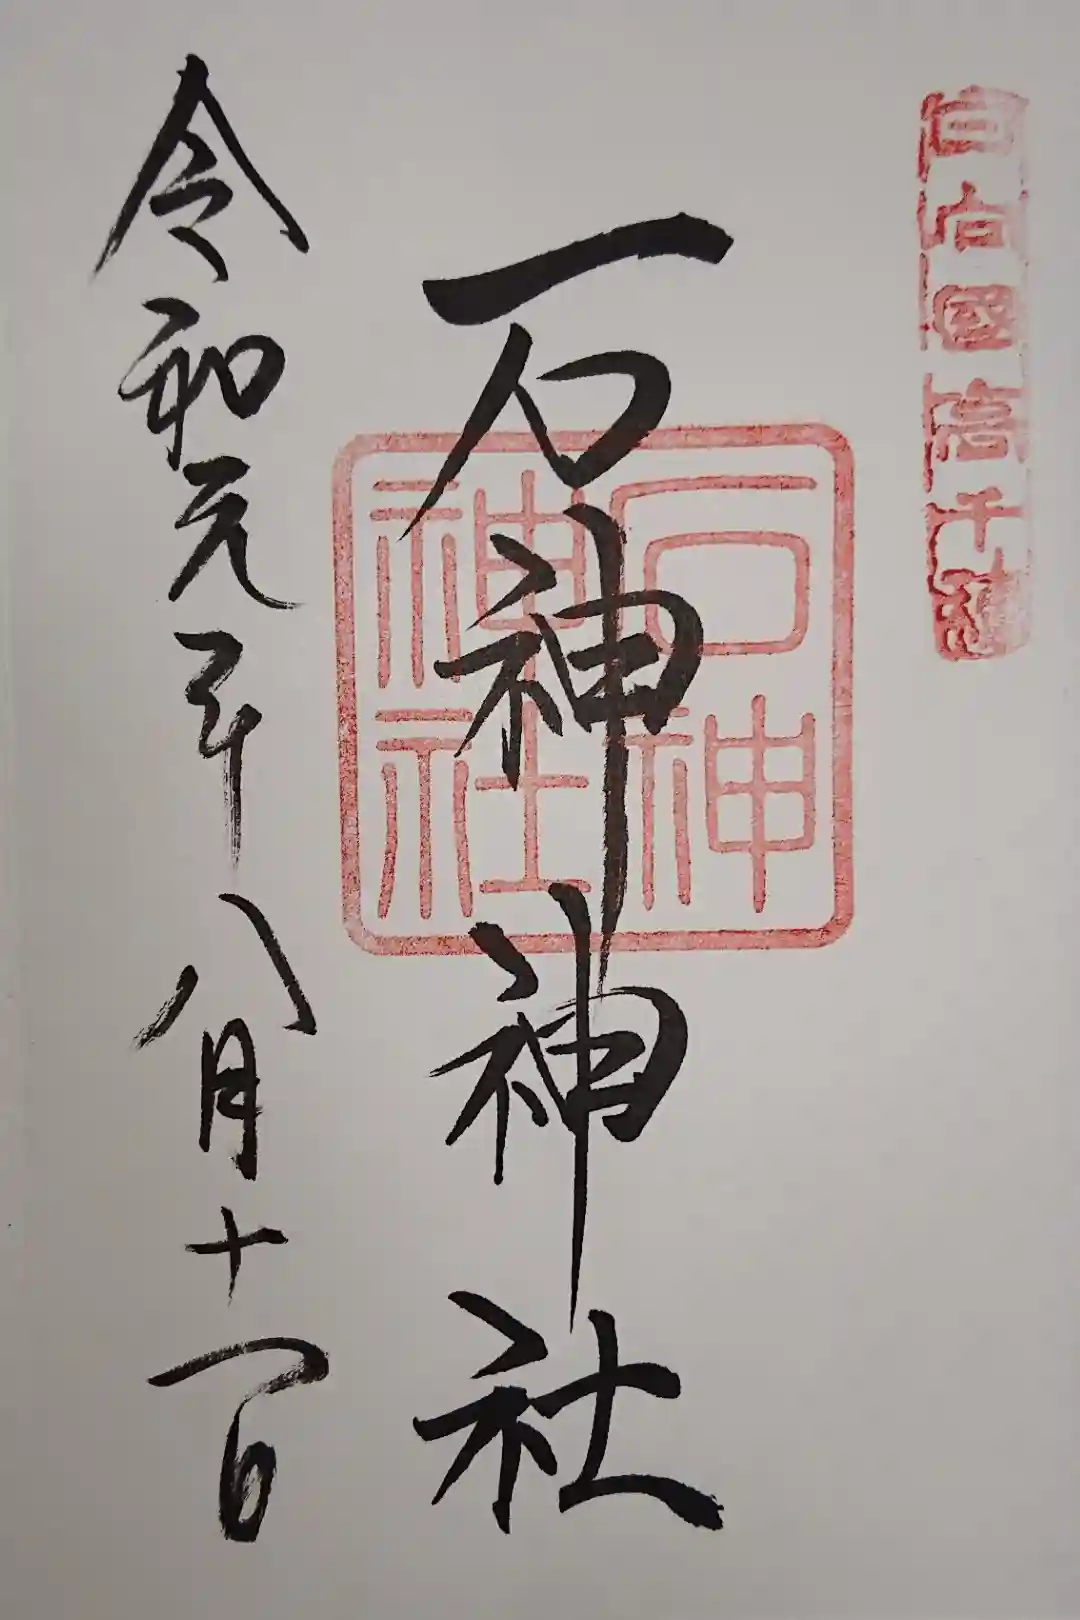 日向國高千穂
石神神社
石神
神社
令和元年八月十一日